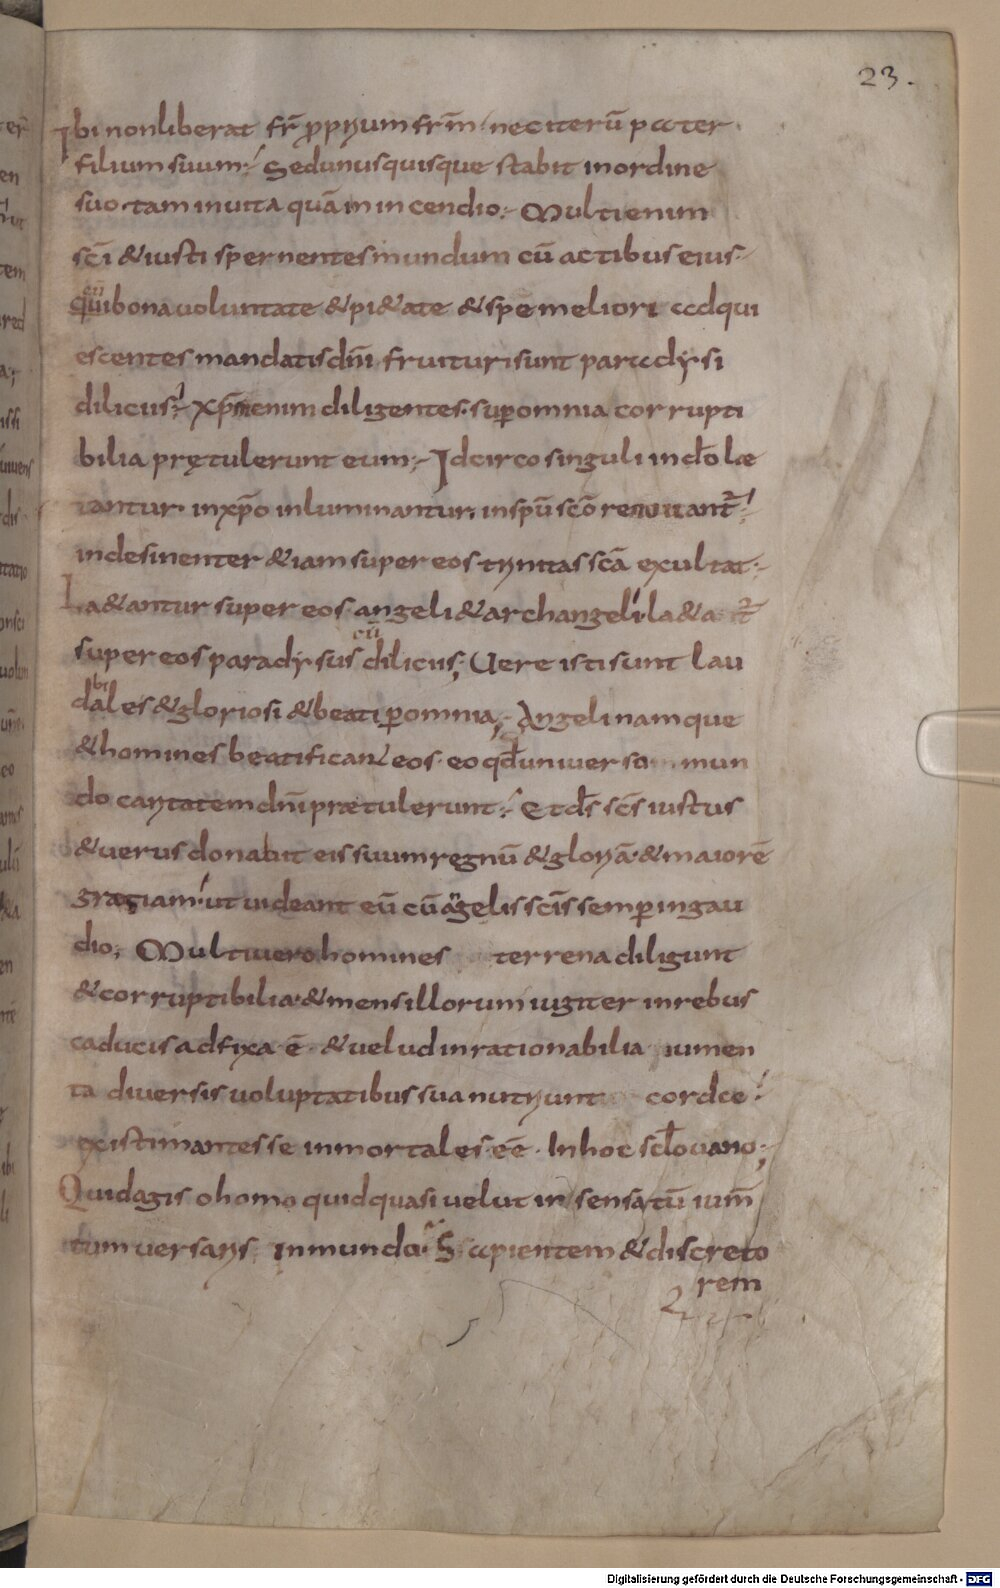 23.
Ibi non liberat fr̄ proprium fr̄m nec iterū pater
filium suum; Sed unusquisque stabit in ordine
suo tam in uita quā in incendio; Multi enim
sc̄i & iusti spernentes mundum cū actibus eius
eū
qui bona uoluntate & pi&ate & spe meliori adqui
escentes mandatis dn̄i fruituri sunt paradysi
diliciis; xp̄m enim diligentes super omnia corrupti
bilia prętulerunt eum; Idcirco singuli in do̅ læ
tantur. in xp̄o inluminantur. in spū sc̄o renouant̄
indesinenter & iam super eos trinitas sc̄a exultat;
La&antur super eos angeli & archangeli. la&a t̄
cū
super eos paradysus diliciis; Uere isti sunt lau
bi
dales & gloriosi & beati ꝑ omnia; Angeli namque
& homines beatificant eos. eo qd̄ uniuerso mun
do caritatem dn̄i prætulerunt; Et ds̄ sc̄s iustus
& uerus donabit eis suum regnū & gloriā & maiorē
gratiam. ut uideant eū cū āgelis sc̄is semꝑ in gau
dio; Multi uero homines terrena diligunt
& corruptibilia. & mens illorum iugiter in rebus
caducis adfixa ē. & uelud inrationabilia iumen
ta diuersis uoluptatibus sua nutriunt corda;
existimantes se inmortales eē. In hoc sc̄lo uano;
Quid agis o homo quid quasi uelut insensatū ium̄
tum uersaris in mundo. Sapientem & discreto
rem
Digitalisierung gefördert durch die Deutsche Forschungsgemeinschaft - DFG